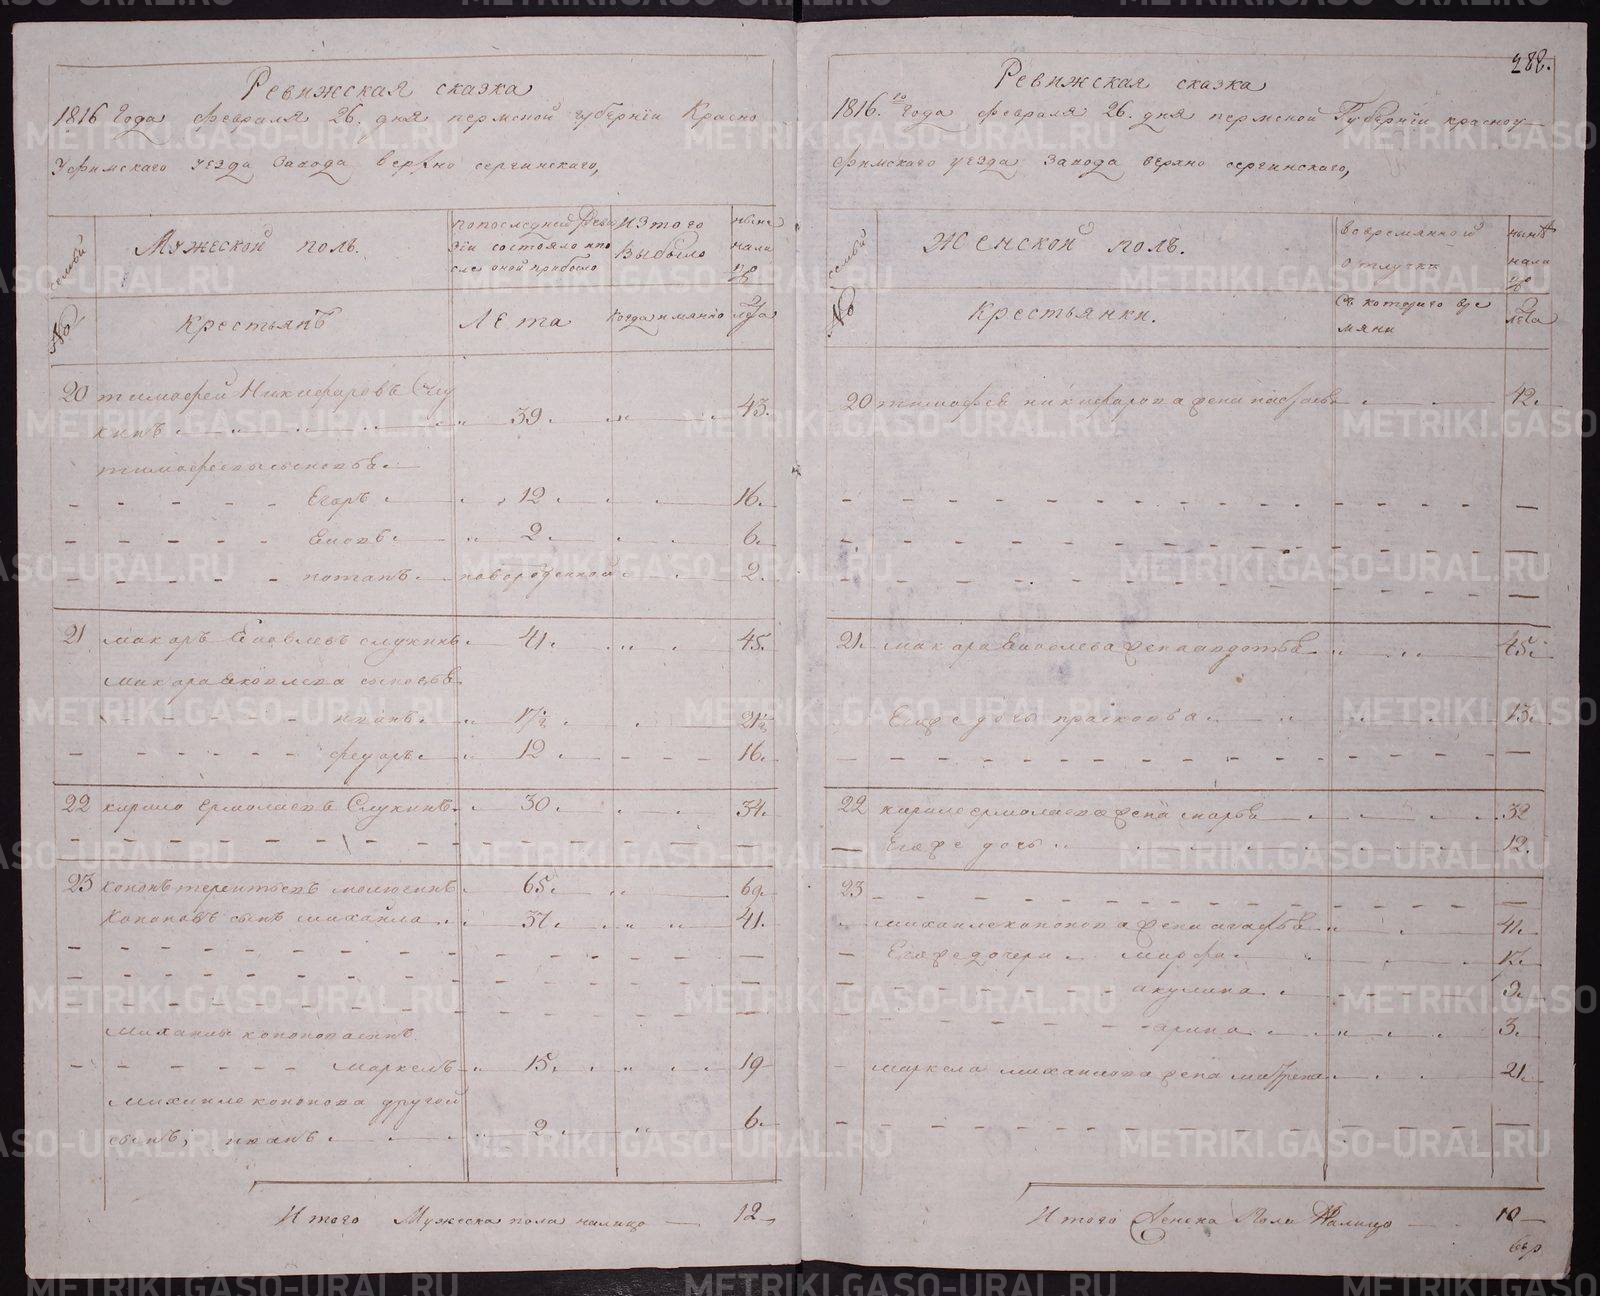 Ревижская сказка
1816 Года февраля 26. дня пермской губернии Красно
Уфимского уезда Завода верхно сергинского,
семьи
Мужеской полъ.
попоследней Реви
зіи состояло ипо
сле оной прибыло
Изтого
Выбыло
ныне
нали
цо
No
Крестьянъ
Лета
Когда имянно
лета
20 тимофей Никифоровъ Слу
кинъ 39 43.
тимофеевы сыновья
Егоръ 12 16.
2. 6.
потапъ новорожденной 2.
21 макаръ Яковлевъ слукинъ 41. 45.
макара яковлева сыновья
иванъ 17½ 21½
федоръ 12 16.
22 кирило ермолаевъ Слукинъ 30. 34.
23 кононъ терентьевъ 65. 69.
Кононовъ сынъ михайла 37 41.
михайлы кононова сынъ
маркелъ 15. 19
михаиле кононова другой
сынъ, иванъ 2. 6.
Итого Мужеска пола налицо 12
288.
Ревижская сказка
1816.го Года февраля 26. дня пермской Губернии красноу
фимского уезда Завода верхно сергинского,
семьи
Женской полъ.
вовремянной
отлучки
ныне
нали
цо
No
Крестьянки.
Съ которого вре
мяни
лета
20 тимофея никифорова жена 42.
21. макара Яковлева жена авдотья 45.
Егоже дочь прасковья 13.
22 кирила ермолаева жена марья 32
Егоже дочь 12.
23
михаиле кононова жена агафья 41.
Егоже дочери марфа 17.
акулина 9.
арина 3.
маркела михаилова жена матрена 21.
Итого Женска Пола Налицо 10